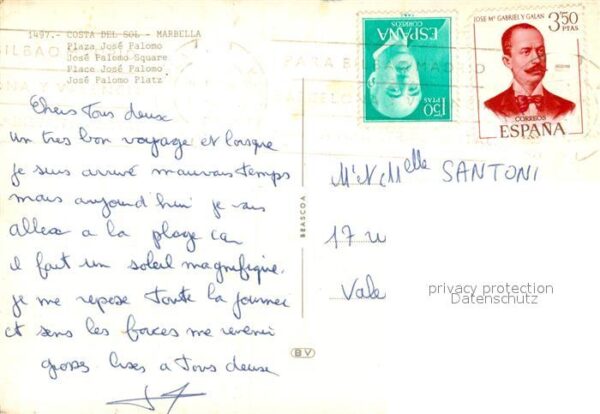 1497.- COSTA DEL SOL - MARBELLA
Plaza José Palomo
José Palomo Square
Place José Palomo
José Palomo Platz
ESPAÑA
CORREOS
1'50
PTAS
JOSE Mª GABRIEL Y GALAN
3'50
PTAS
CORREOS
ESPAÑA
BILBAO
PARA
Chers Tous deux
un tres bon voyage et lorsque
je suis arrivé mauvais temps
mais aujourd'hui je vais
allez a la plage car
il fait un soleil magnifique.
je me repose toute la journee
et sens les forces me revenir
grosses bises a Tous deux
BEASCOA
BV
SANTONI
17
Vale
privacy protection
Datenschutz